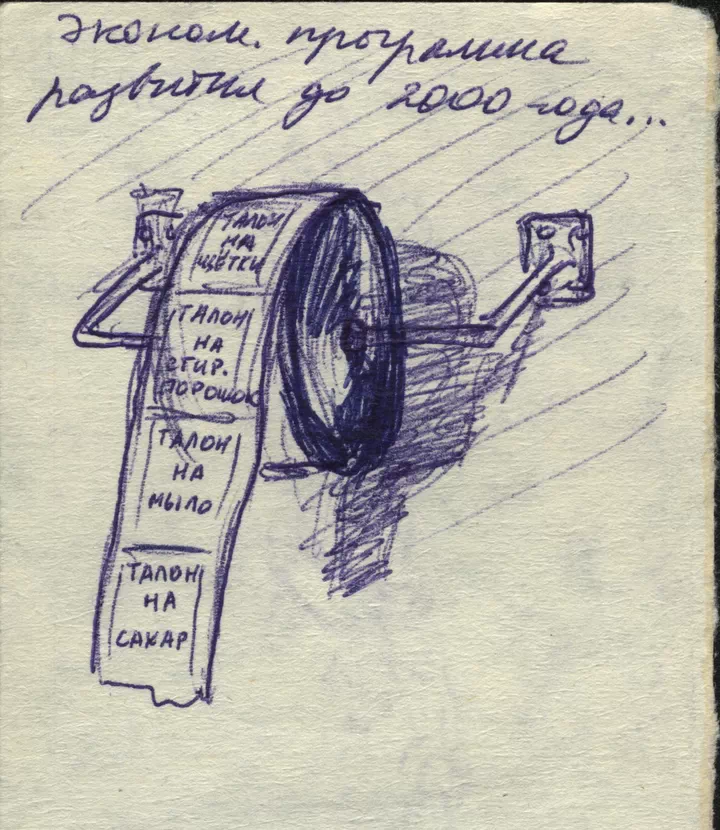 эконом. программа
развития до 2000 года...
ТАЛОН
НА
ЩЁТКИ
ТАЛОН
НА
СТИР.
ПОРОШОК
ТАЛОН
НА
МЫЛО
ТАЛОН
НА
САХАР